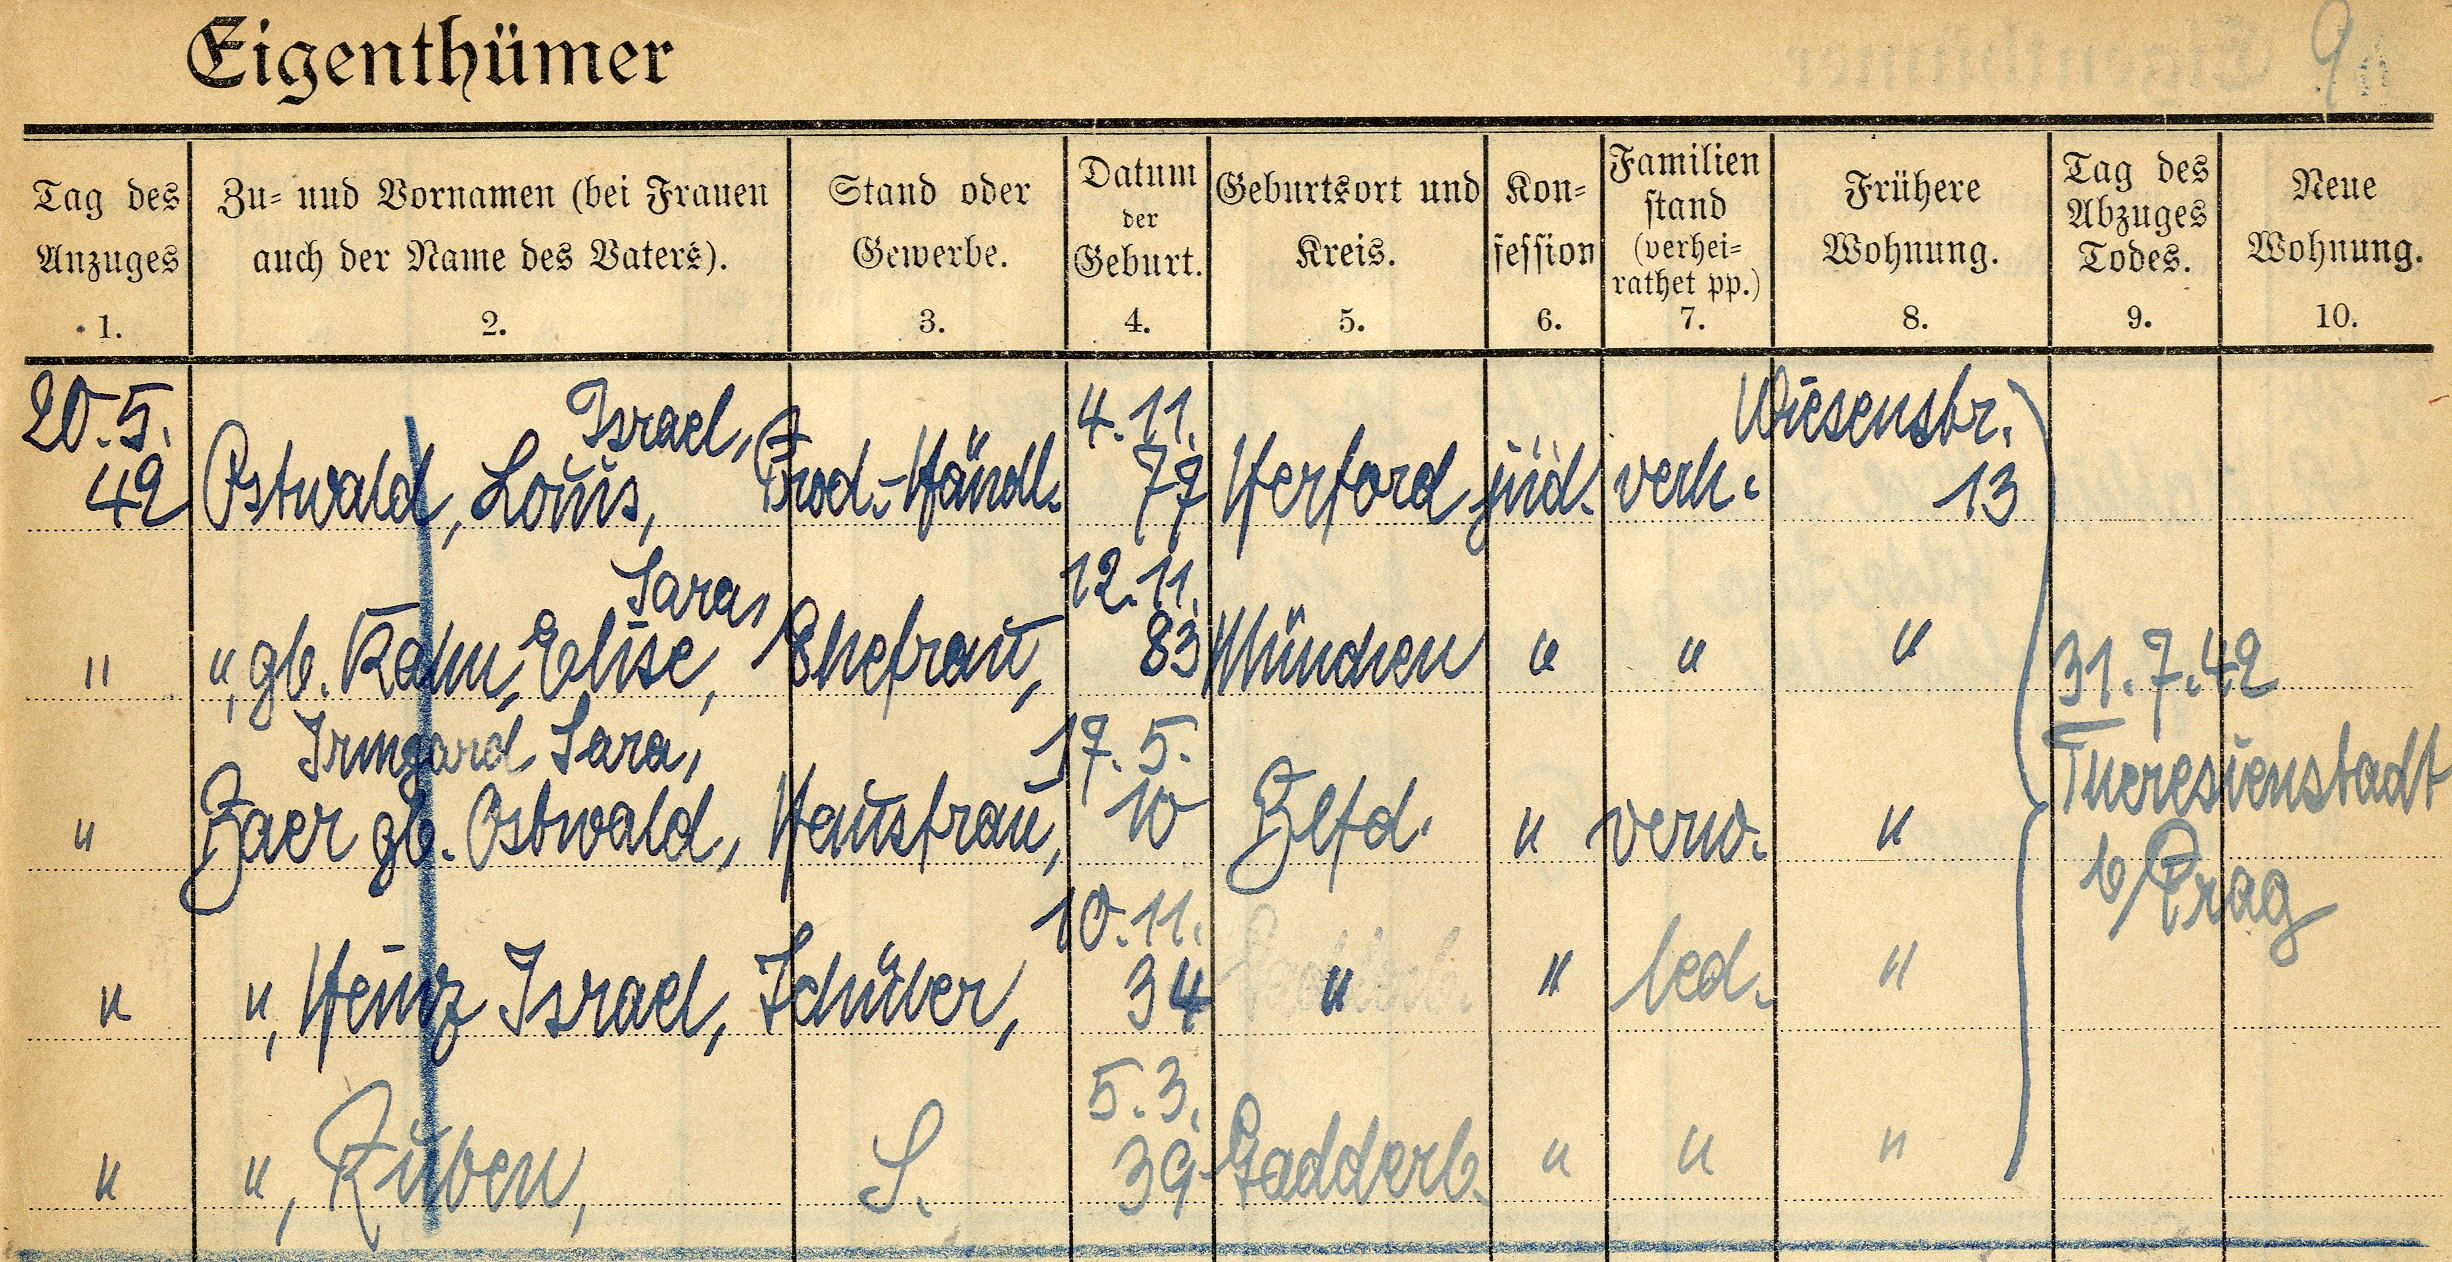 Eigenthümer
Tag des Anzuges 1.
Zu= und Vornamen (bei Frauen auch der Name des Vaters). 2.
Stand oder Gewerbe. 3.
Datum der Geburt. 4.
Geburtsort und Kreis. 5.
Kon=fession 6.
Familien stand (verhei=rathet pp.) 7.
Frühere Wohnung. 8.
Tag des Abzuges Todes. 9.
Neue Wohnung. 10.
20.5. Israel, 4.11. Wiesenstr.
42 Ostwald, Louis, Prod.-Händl. 77 Herford jüd. verh. 13
Sara, 12.11.
" ", gb. Kahn, Elise, Ehefrau, 83 München " " " 31.7.42
Irmgard Sara, 17.5. Theresienstadt
" Baer gb. Ostwald, Hausfrau, 10 Blfd. " verw. " b/Prag
10.11.
" ", Heinz Israel, Schüler, 34 " " led. "
5.3.
" ", Ruben, S. 39 Gadderb. " " "